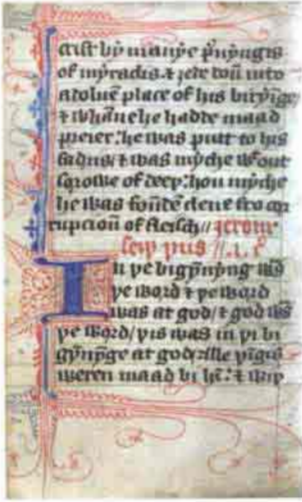 crist bi manye p̃uyngis
of myraclis. ⁊ ȝede doū into
a doluē place of his biryīge
⁊ whāne he hadde maad
preier: he was putt to his
fadris: ⁊ was myche wͭout
sorowe of deeþ: hou myche
he was foūdē clene fro cor
rupcioū of fleisch // Jerom
seiþ þus // .i. c̃
In þe bigynnyng was
þe word ⁊ þe word
was at god / ⁊ god was
þe word / þis was in þe bi
gynnynge at god / alle þīgis
weren maad bi hī: ⁊ wiþ